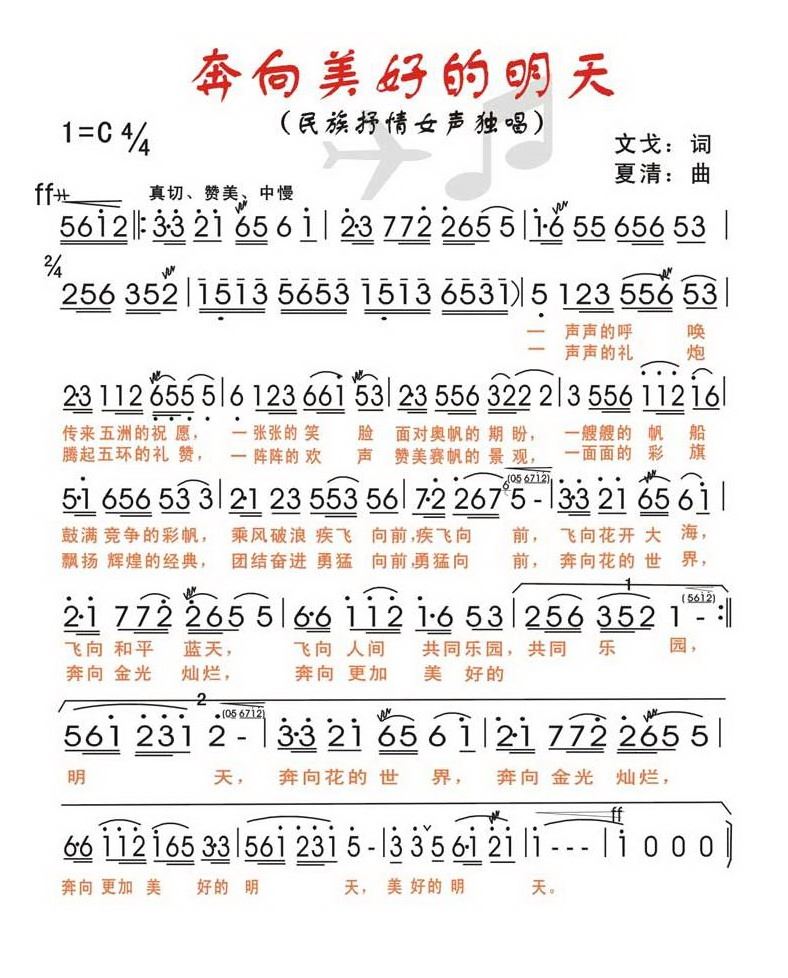 奔向美好的明天
（民族抒情女声独唱）
1=C 4/4
文戈：词
夏清：曲
ff 真切、赞美、中慢
5612 ‖: 3·3 21 65 6 1 | 2·3 772 265 5 | 1·6 55 656 53 |
2/4
256 352 | 1513 5653 1513 6531) | 5 123 556 53 |
一 声声的呼 唤
一 声声的礼 炮
2·3 112 655 5 | 6 123 661 53 | 2·3 556 322 2 | 3 556 112 16 |
传来五洲的祝愿， 一张张的笑 脸 面对奥帆的期盼， 一艘艘的帆 船
腾起五环的礼赞， 一阵阵的欢 声 赞美赛帆的景观， 一面面的彩 旗
(05 6712)
5·1 656 53 3 | 2·1 23 553 56 | 7·2 267 6 5 - | 3·3 21 65 61 |
鼓满 竞争的彩帆， 乘风破浪 疾飞 向前,疾飞向 前， 飞向花开 大 海，
飘扬 辉煌的经典， 团结奋进 勇猛 向前,勇猛向 前， 奔向花的 世 界，
1 (5612)
2·1 772 265 5 | 6·6 112 1·6 53 | 256 352 1 - :‖
飞向 和平 蓝天， 飞向 人间 共同乐园，共同 乐 园，
奔向 金光 灿烂， 奔向 更加 美 好的
2 (05 6712)
561 231 2 - | 3·3 21 65 6 1 | 2·1 772 265 5 |
明 天，奔向花的 世 界， 奔向 金光 灿烂，
ff
6·6 112 165 3·3 | 561 231 5 - | 3 35 6·1 21 | 1 - - - | 1 0 0 0 |
奔向 更加 美 好的 明 天，美 好的 明 天。